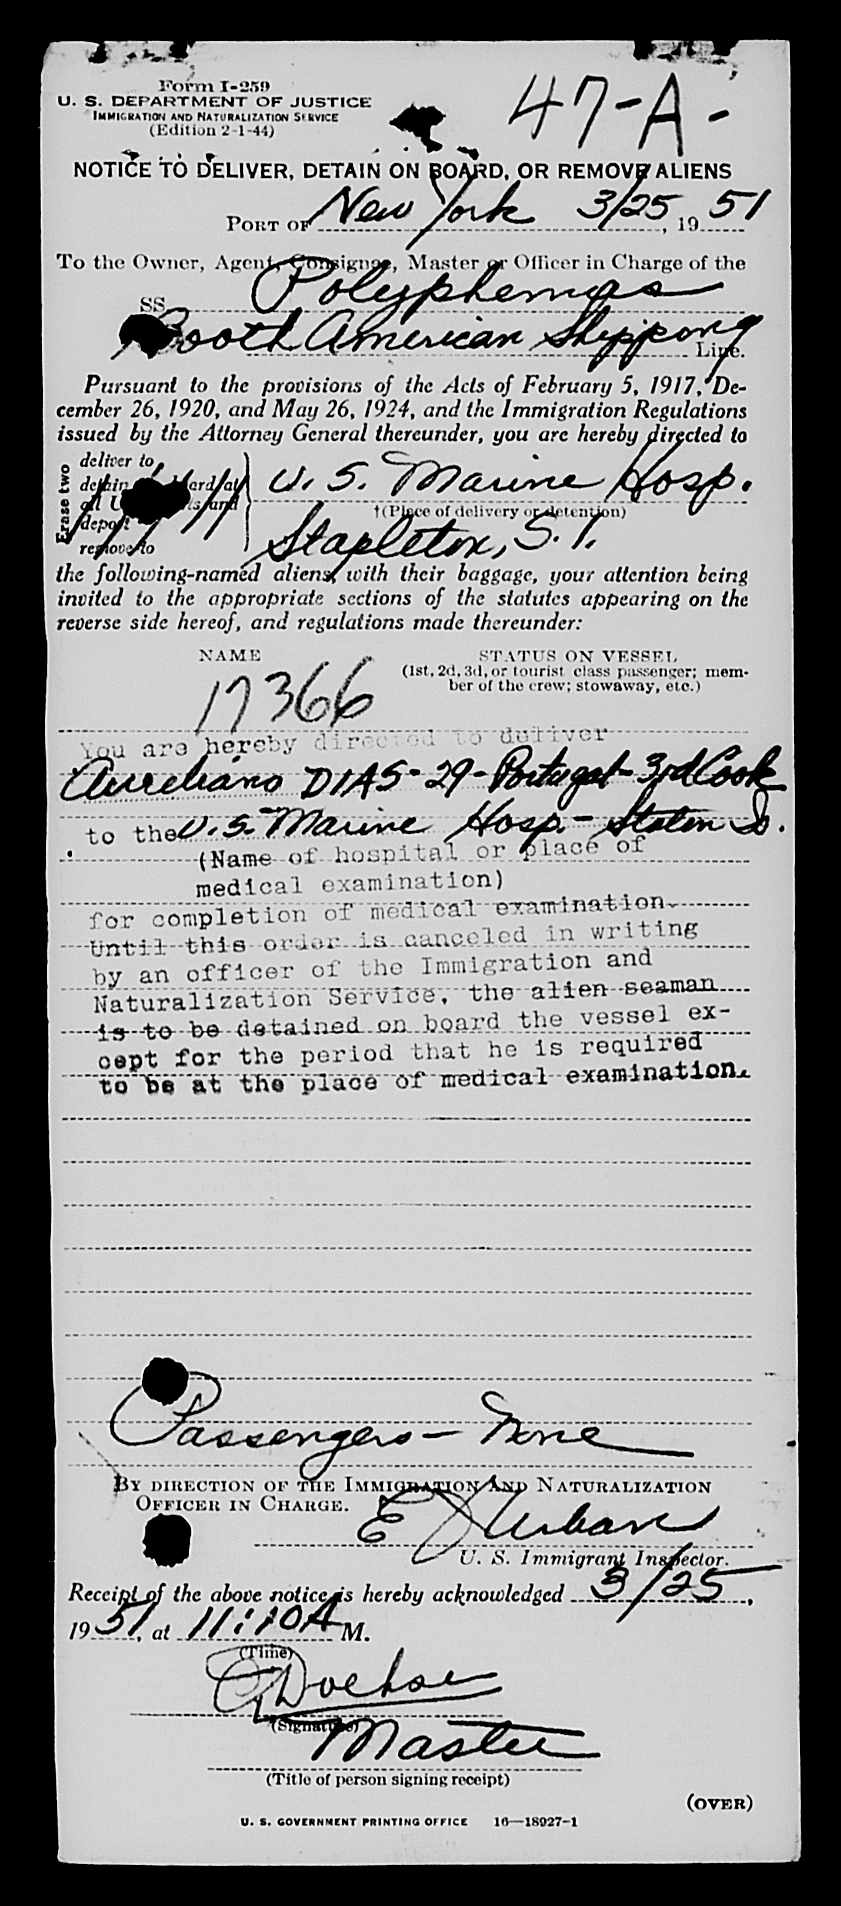 Form I-259
47-A-
U. S. DEPARTMENT OF JUSTICE
IMMIGRATION AND NATURALIZATION SERVICE
(Edition 2-1-44)
NOTICE TO DELIVER, DETAIN ON BOARD, OR REMOVE ALIENS
PORT OF New York 3/25, 1951
To the Owner, Agent, Consignee, Master or Officer in Charge of the
SS Polyphemus
Booth American Shipping Line.
Pursuant to the provisions of the Acts of February 5, 1917, De-
cember 26, 1920, and May 26, 1924, and the Immigration Regulations
issued by the Attorney General thereunder, you are hereby directed to
Erase two
deliver to
detain ard at U. S. Marine Hosp.
†(Place of delivery or detention)
deport
remove to Stapleton, S. I.
the following-named aliens, with their baggage, your attention being
invited to the appropriate sections of the statutes appearing on the
reverse side hereof, and regulations made thereunder:
NAME STATUS ON VESSEL
(1st, 2d, 3d, or tourist class passenger; mem-
ber of the crew; stowaway, etc.)
17366
You are hereby directed to deliver
Aureliano DIAS - 29 - Portugal - 3rd Cook
to the U. S. Marine Hosp. - Staten Is.
(Name of hospital or place of
medical examination)
for completion of medical examination.
Until this order is canceled in writing
by an officer of the Immigration and
Naturalization Service, the alien seaman
is to be detained on board the vessel ex-
cept for the period that he is required
to be at the place of medical examination.
Passengers - None
BY DIRECTION OF THE IMMIGRATION AND NATURALIZATION
OFFICER IN CHARGE.
E J Urban
U. S. Immigrant Inspector.
Receipt of the above notice is hereby acknowledged 3/25,
1951, at 11:10 A M.
(Time)
(Signature)
Master
(Title of person signing receipt)
(OVER)
U. S. GOVERNMENT PRINTING OFFICE 16—18927-1